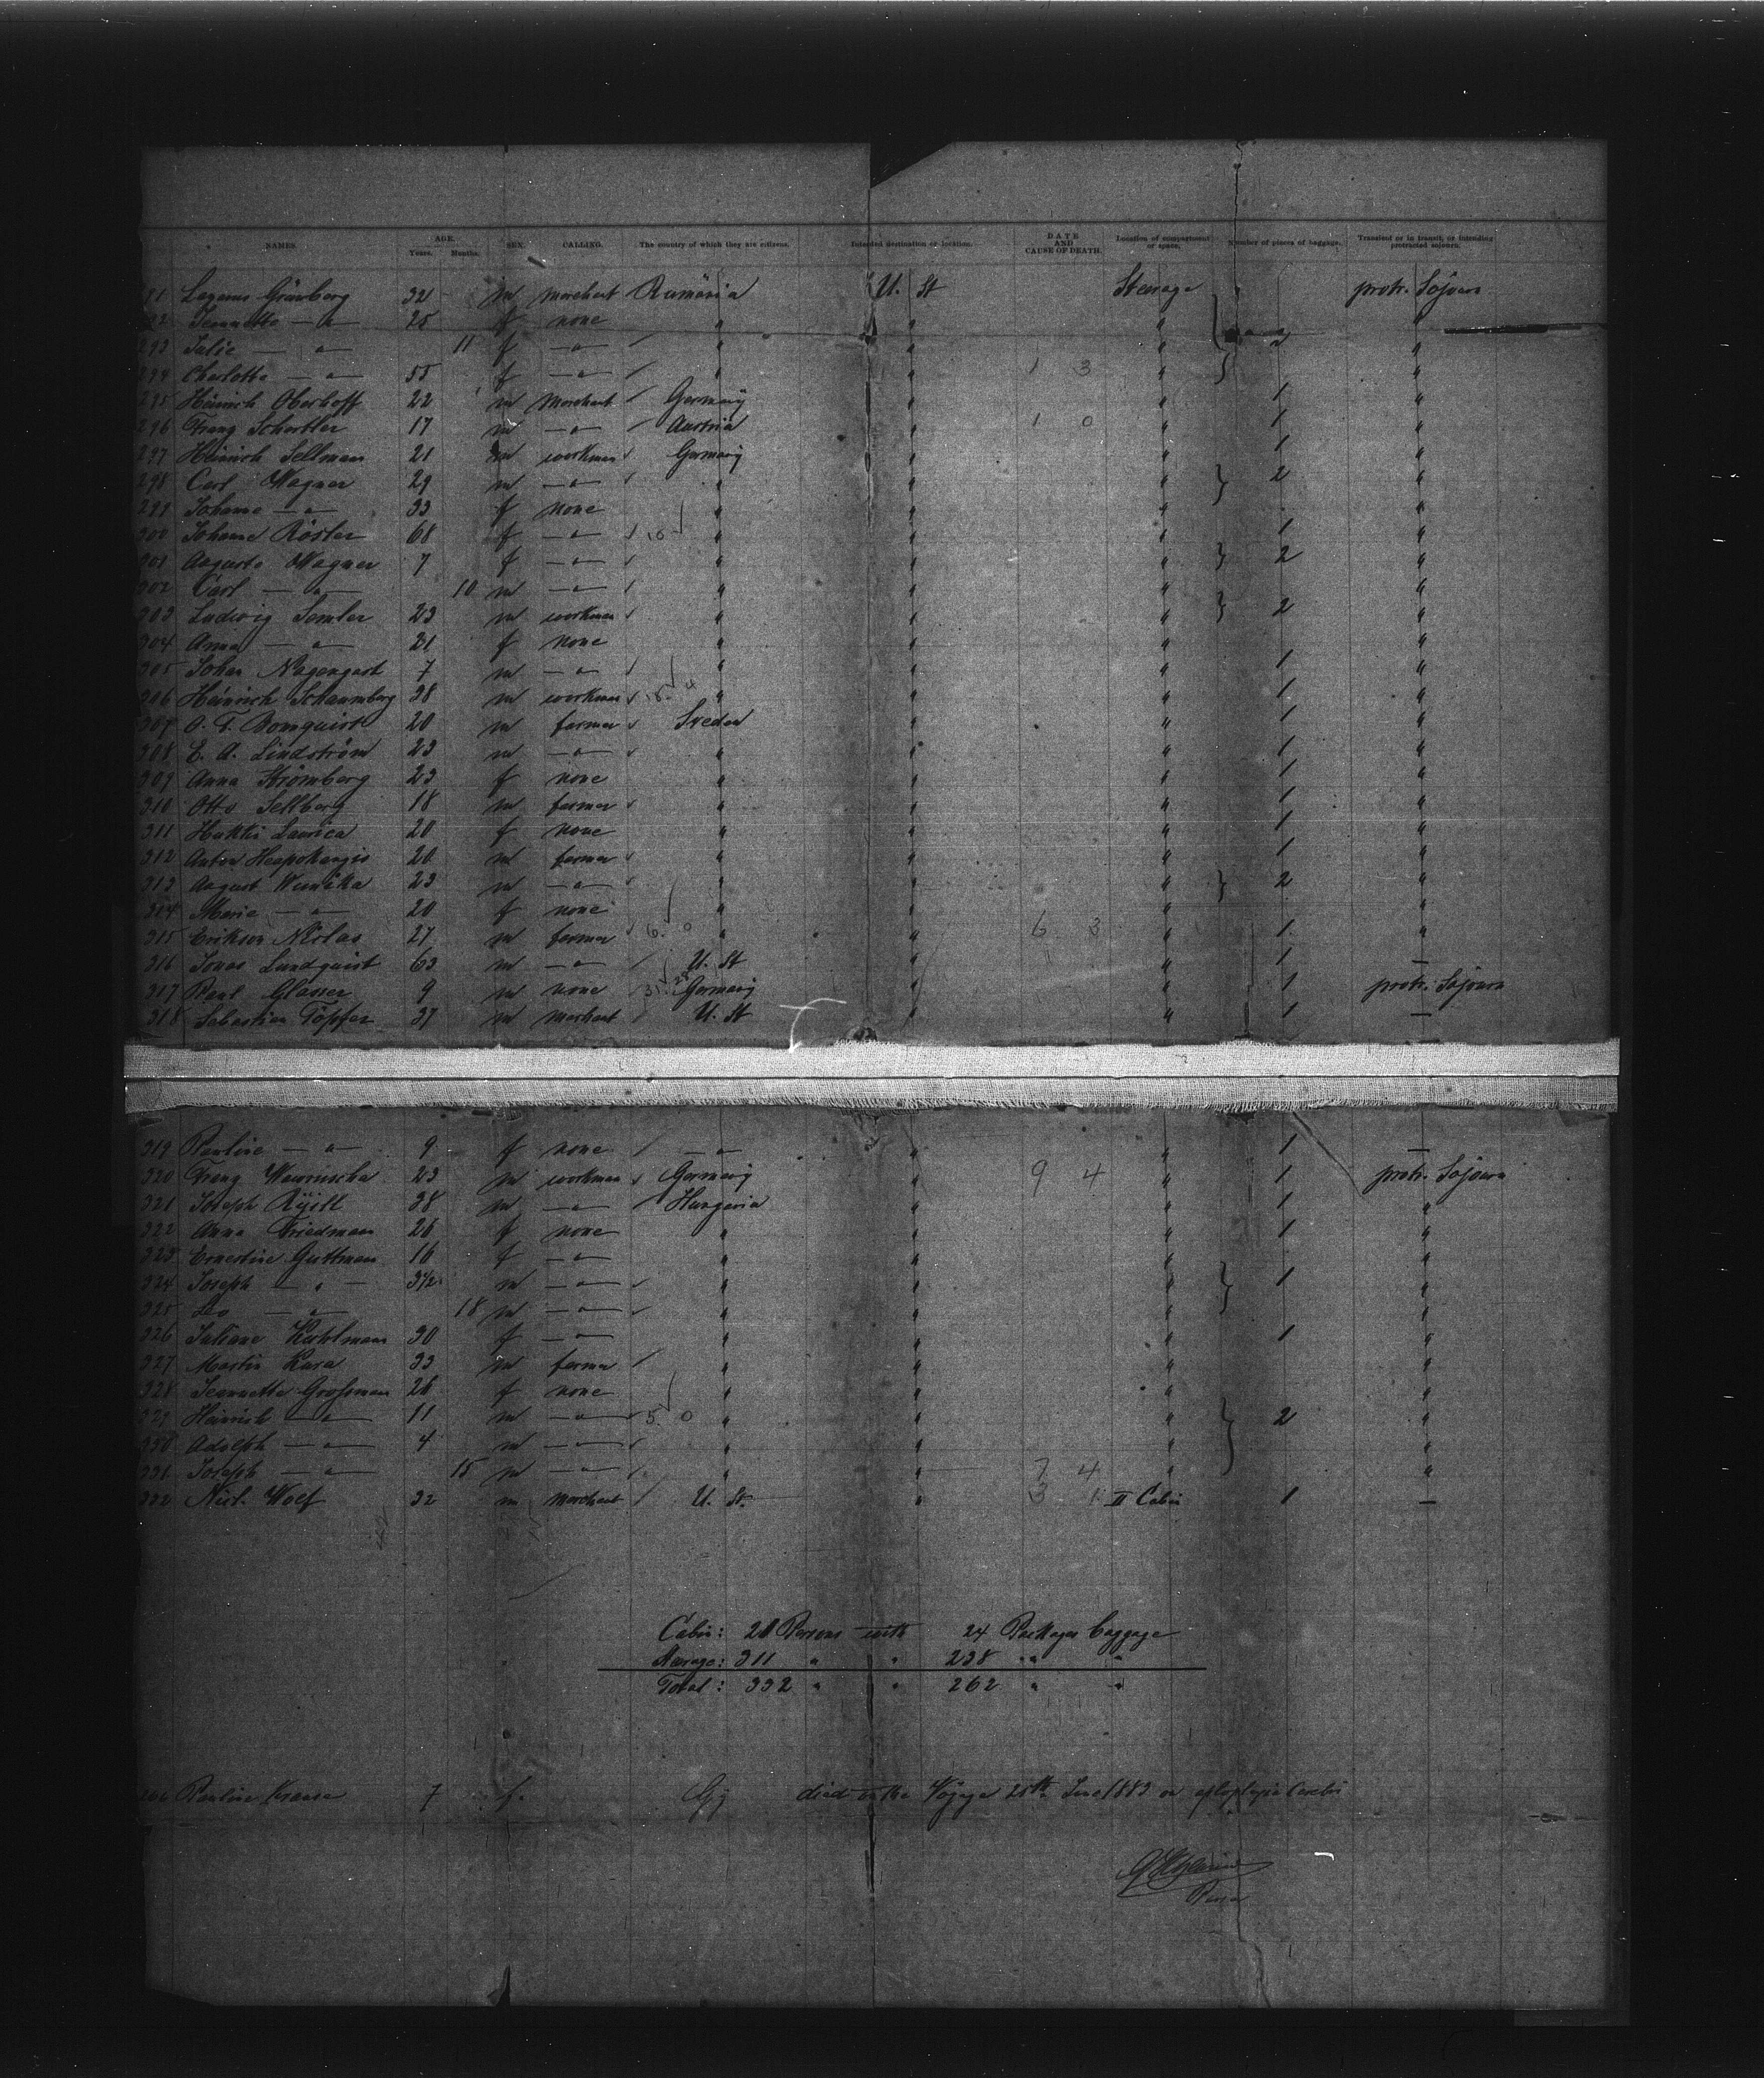 NAMES. AGE. Years. Months. SEX. CALLING. The country of which they are citizens. Intended destination or location. DATE AND CAUSE OF DEATH. Location of compartment or space. Number of pieces of baggage. Transient or in transit, or intending protracted sojourn.
Lazarus Grünberg 32 m merchant Rumänia U. St Steerage protr. Sojourn
292 Jeannette — " — 25 f none " " " "
293 Julie — " — 11 f — " — " " " 2 "
294 Charlotte — " — 55 f — " — " " 1 3 " "
295 Heinrich Oberhoff 22 m merchant Germany " " 1 "
296 Franz Schertler 17 m — " — Austria " 1 0 " 1 "
297 Heinrich Sellman 21 m workman Germany " " 1 "
298 Carl Wagner 29 m — " — " " " 2 "
299 Johanne — " — 33 f none " " " "
300 Johanne Röster 68 f — " — 10 " " " 1 "
301 Auguste Wagner 7 f — " — " " " 2 "
302 Carl — " — 10 m — " — " " " "
303 Ludwig Semler 23 m workman " " " 2 "
304 Anna — " — 21 f none " " " "
305 Johan Nagengast 7 m — " — " " " 1 "
306 Heinrich Schaumberg 38 m workman " " " 1 "
307 O. F. Bomquist 20 m farmer Sveden " " 1 "
308 E. A. Lindström 23 m — " — " " " 1 "
309 Anna Strömberg 23 f none " " " 1 "
310 Otto Sellberg 18 m farmer " " " 1 "
311 Laurica 20 f none " " " 1 "
312 Anton 20 m farmer " " " 1 "
313 August 23 m — " — " " " 2 "
314 Marie — " — 20 f none " " " "
315 Erikson Niclas 27 m farmer 6. 0 " " 6 3 " 1 "
316 Jonas Lundquist 63 m — " — U. St " " 1 —
317 Paul Glasser 9 m none Germany " " 1 protr. Sojourn
318 Sebastian Töpfer 37 m merchant U. St " " 1 —
319 Pauline — " — 9 f none — " — " " 1 —
320 Franz 23 m workman Germany " 9 4 " 1 protr. Sojourn
321 Joseph 38 m — " — Hungaria " " 1 "
322 Anna Friedman 26 f none " " " 1 "
323 Ernestine Guttman 16 f — " — " " " "
324 Joseph — " — 3 1/2 m — " — " " " 1 "
325 Leo — " — 18 m — " — " " " "
326 Juliane Kuhlman 30 f — " — " " " 1 "
327 Martin Kara 33 m farmer " " " "
328 Jeannette Großman 26 f none " " " "
329 Heinrich — " — 11 m — " — 5. 0 " " " 2 "
330 Adolph — " — 4 m — " — " " " "
331 Joseph — " — 15 m — " — " " 7 4 " "
332 Nicl. Wolf 32 m merchant U. St. " 3 1 II Cabin 1 —
Cabin: 21 Persons with 24 Packages baggage
Steerage: 311 " " 238 " "
Total: 332 " " 262 " "
Pauline Krause 7 f. Gy died on the Voyage 25th June 1883